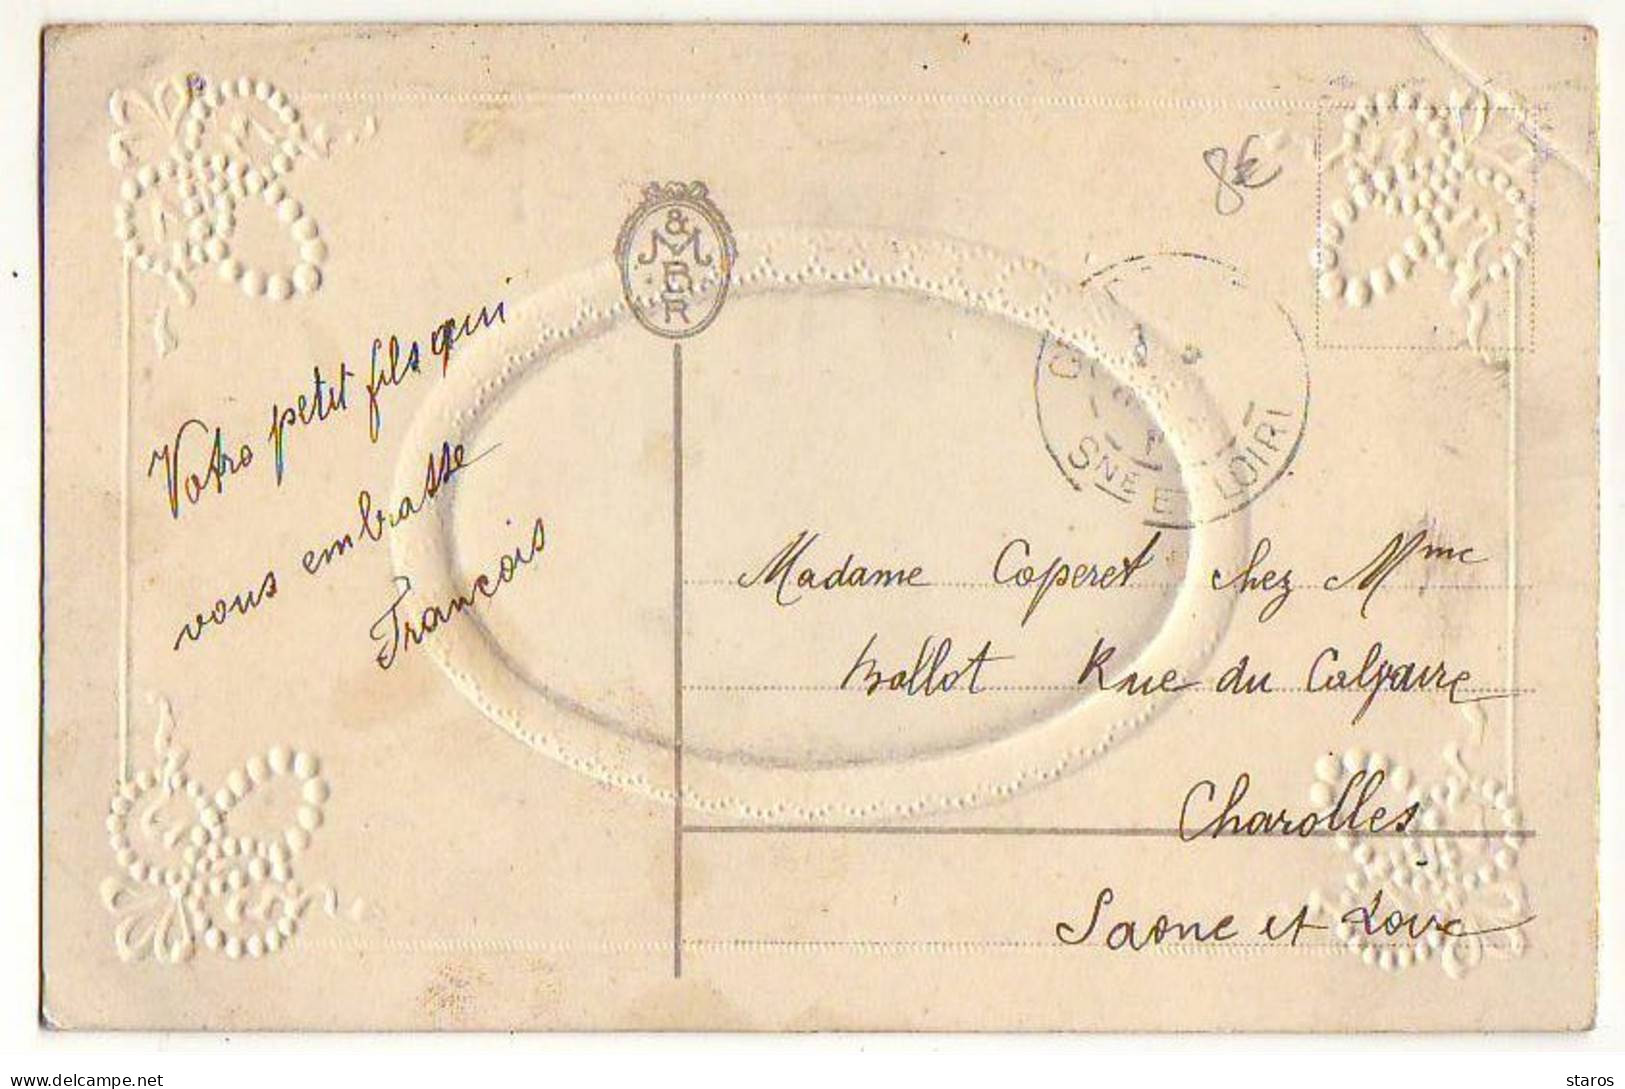 8€
& M
B
R
SNE E LOIR
Votre petit fils qui
vous embrasse
François
Madame Coperet chez Mme
Bollot Rue du Calvaire
Charolles
Saone et Loire
delcampe.net
staros